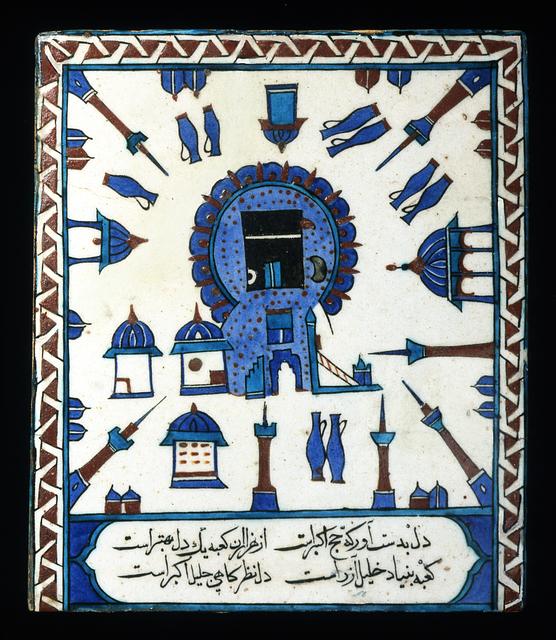 دل بدست آور که حج اکبراست از هزاران کعبه یك دل بهتراست
کعبه بنیاد خلیل ازراست دل نظرکاهی جلیل اکبراست